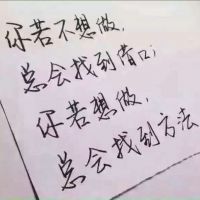 你若不想做，
总会找到借口；
你若想做，
总会找到方法